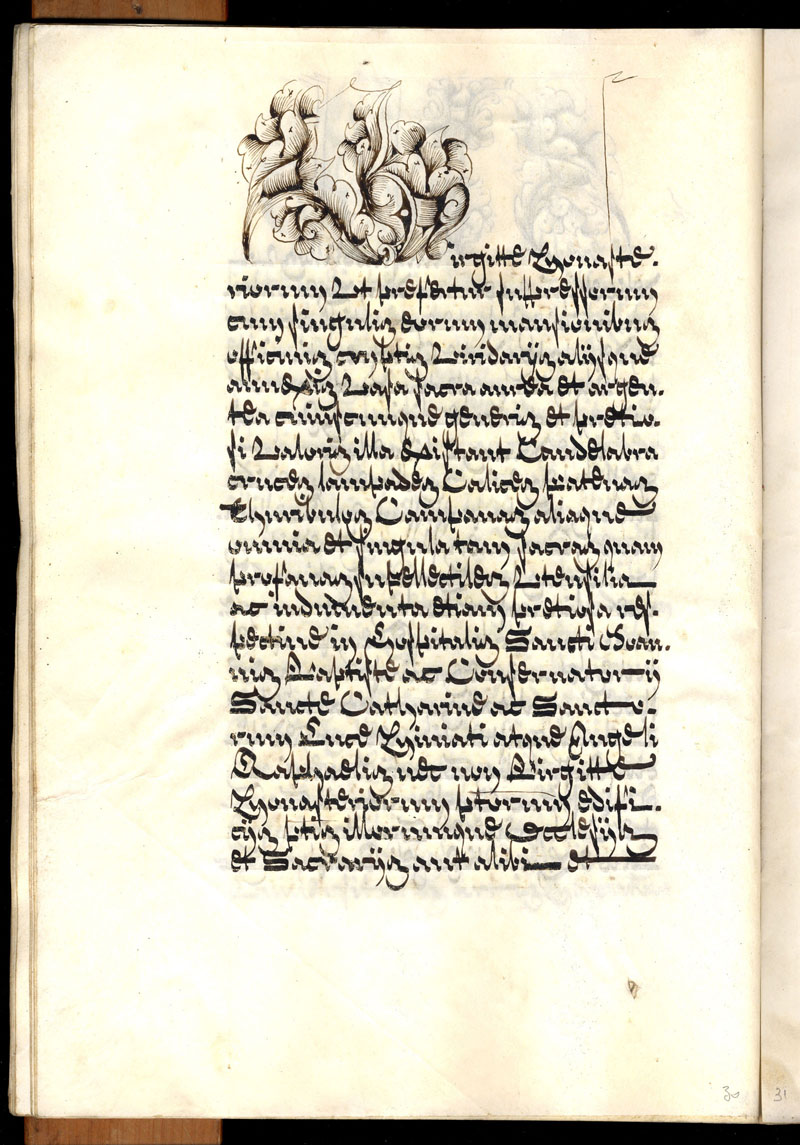 Birgitte Monaste-
riorum Ut prefertur suppressorum
cum singulis eorum mansionibus
officinis cryptis Viridarijs alijsque
annexis Vasa sacra aurea et argen-
tea cuiuscumque generis et pretio-
si Valoris illa existant Candelabra
cruces lampades Calices patenas
Thuribulos Campanas aliaque
omnia et singula tam sacras quam
profanas supellectiles Utensilia
ac indumenta etiam pretiosa res-
pective in Hospitalis Sancti Joan-
nis Baptiste ac Conservatorij
Sancte Catharine ac Sancto-
rum Luce Miniati atque Angeli
Raphaelis nec non Birgitte
Monasteriorum ptorum edifi-
cijs ptis illorumque Ecclesijs
et Sacrarijs aut alibi et
30
31